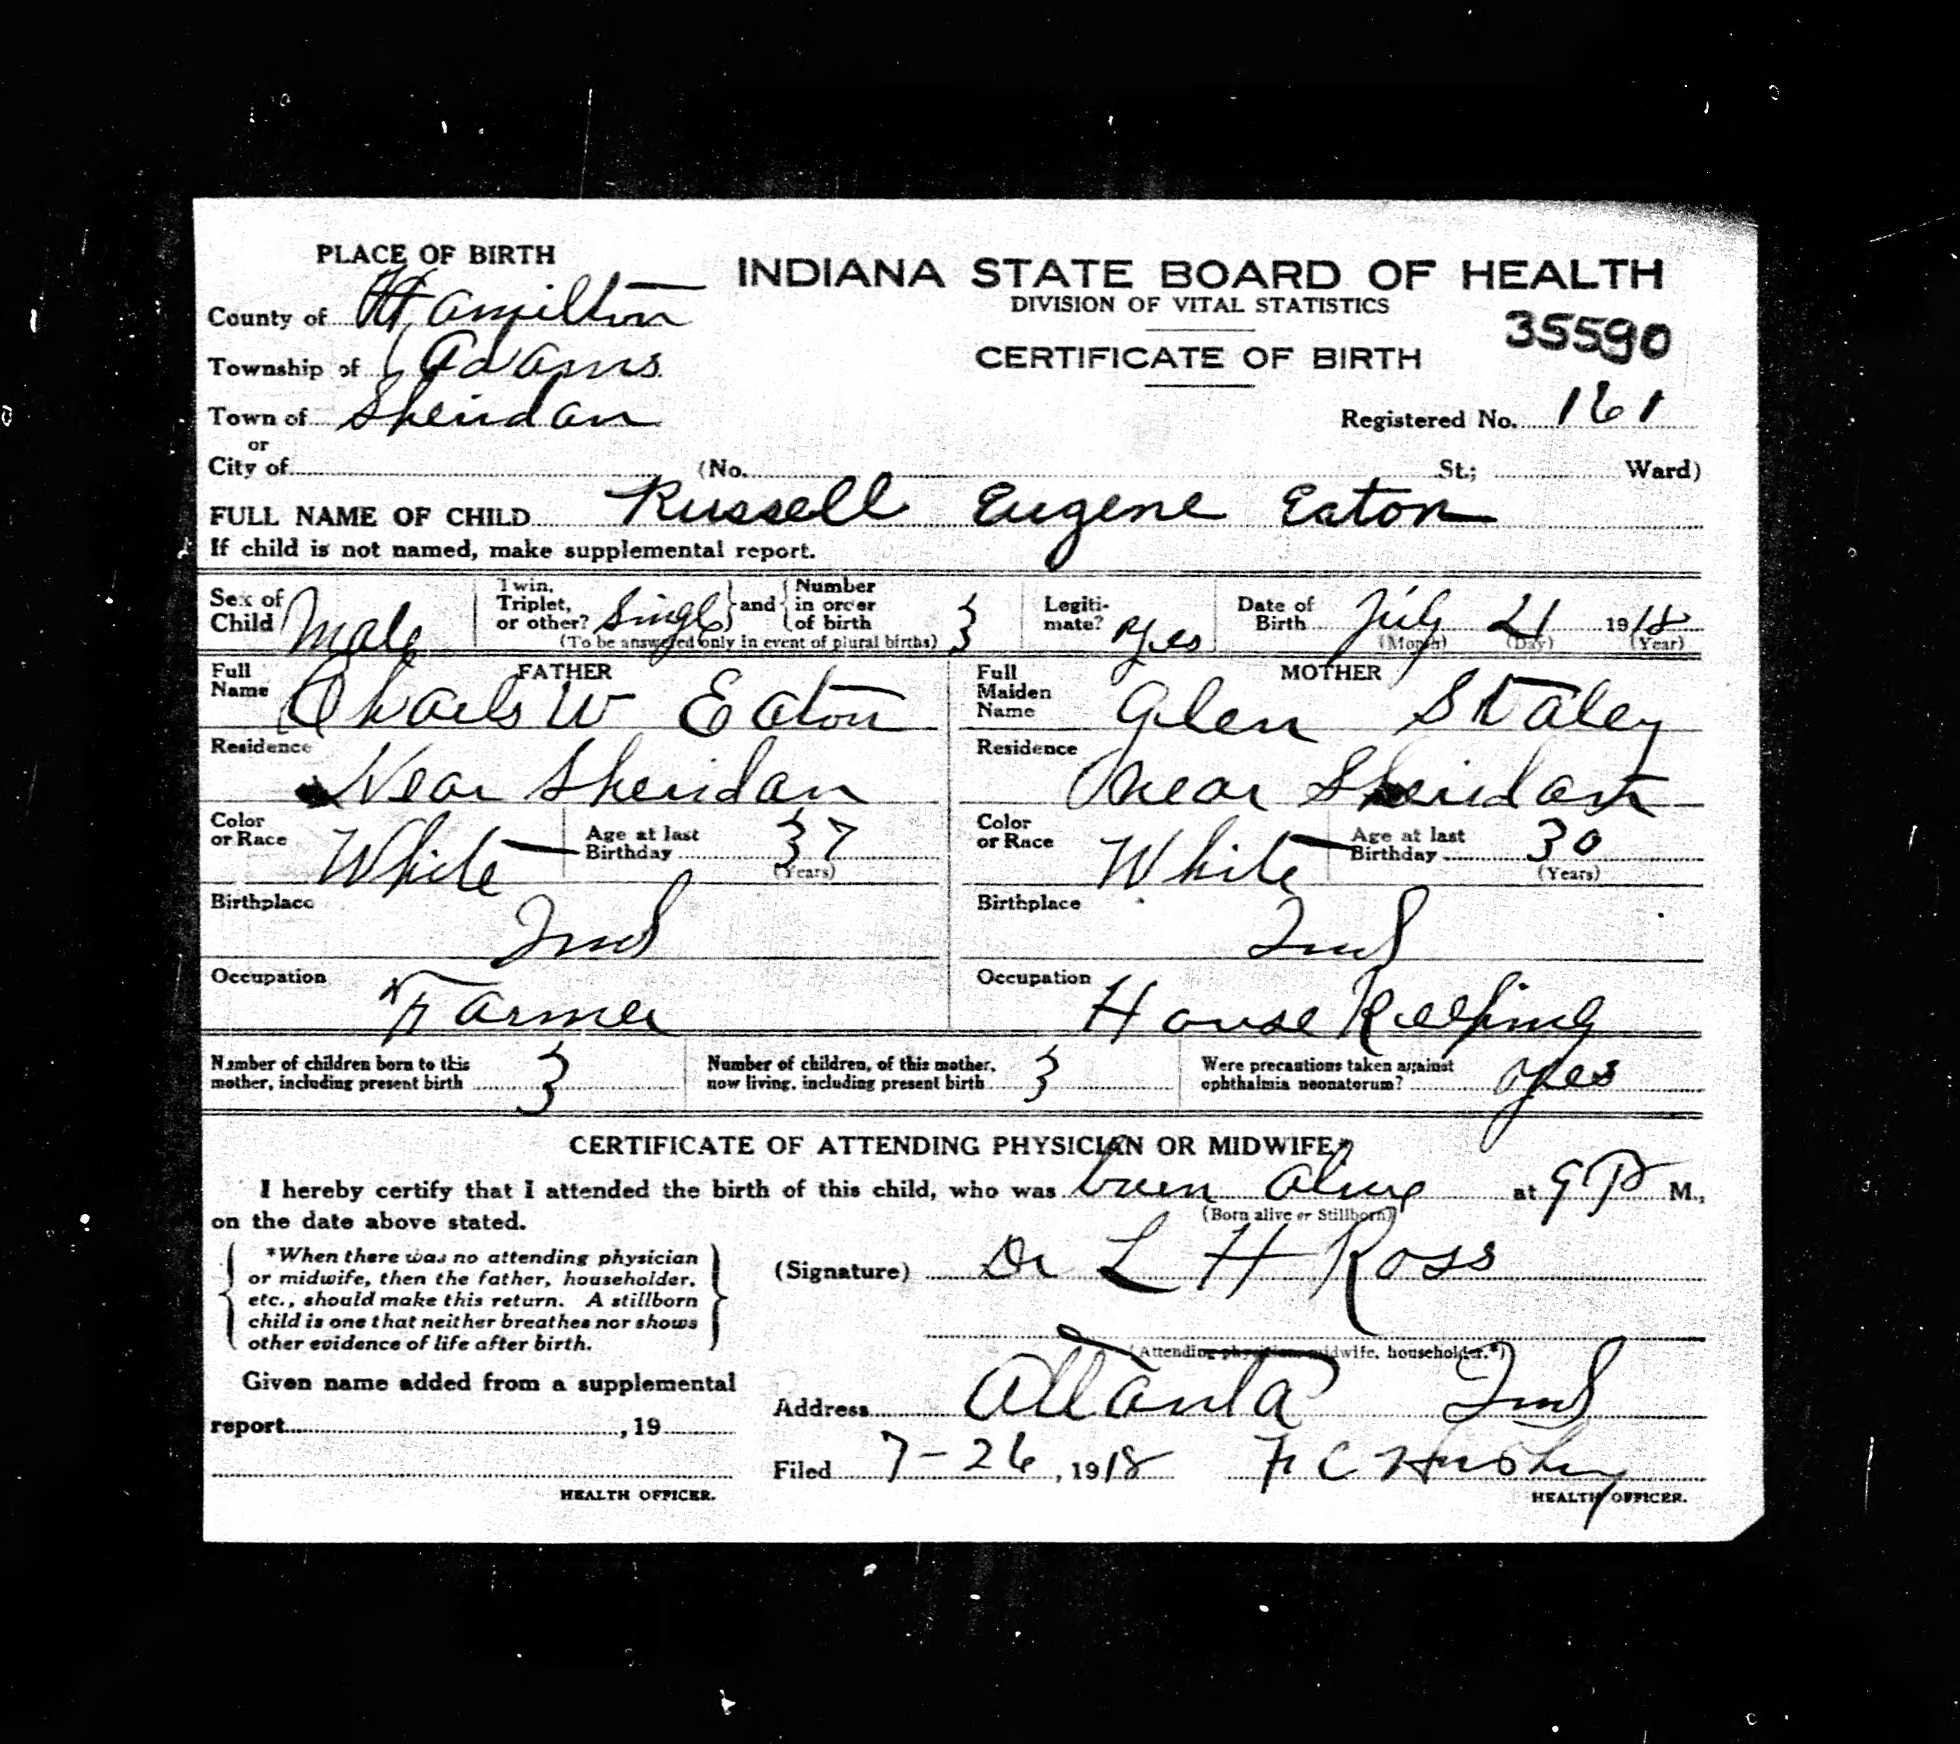 PLACE OF BIRTH
INDIANA STATE BOARD OF HEALTH
County of Hamilton
DIVISION OF VITAL STATISTICS
35590
Township of Adams
CERTIFICATE OF BIRTH
Town of Sheridan
Registered No. 161
or
City of (No. St.; Ward)
FULL NAME OF CHILD Russell Eugene Eaton
If child is not named, make supplemental report.
Sex of Child Male
Twin, Triplet, or other? Single and Number in order of birth 3
(To be answered only in event of plural births)
Legitimate? yes
Date of Birth July 21 1918
(Month) (Day) (Year)
FATHER
Full Name Charls W Eaton
MOTHER
Full Maiden Name Glen Staley
Residence Near Sheridan
Residence near Sheridan
Color or Race White
Age at last Birthday 37
(Years)
Color or Race White
Age at last Birthday 30
(Years)
Birthplace Ind
Birthplace Ind
Occupation Farmer
Occupation House Keeping
Number of children born to this mother, including present birth 3
Number of children, of this mother, now living, including present birth 3
Were precautions taken against ophthalmia neonatorum? yes
CERTIFICATE OF ATTENDING PHYSICIAN OR MIDWIFE*
I hereby certify that I attended the birth of this child, who was born alive at 9 P M.,
(Born alive or Stillborn)
on the date above stated.
*When there was no attending physician
or midwife, then the father, householder,
etc., should make this return. A stillborn
child is one that neither breathes nor shows
other evidence of life after birth.
(Signature) Dr L H Ross
(Attending physician, midwife, householder.*)
Given name added from a supplemental
report , 19
HEALTH OFFICER.
Address Atlanta Ind
Filed 7-26, 1918 F C
HEALTH OFFICER.